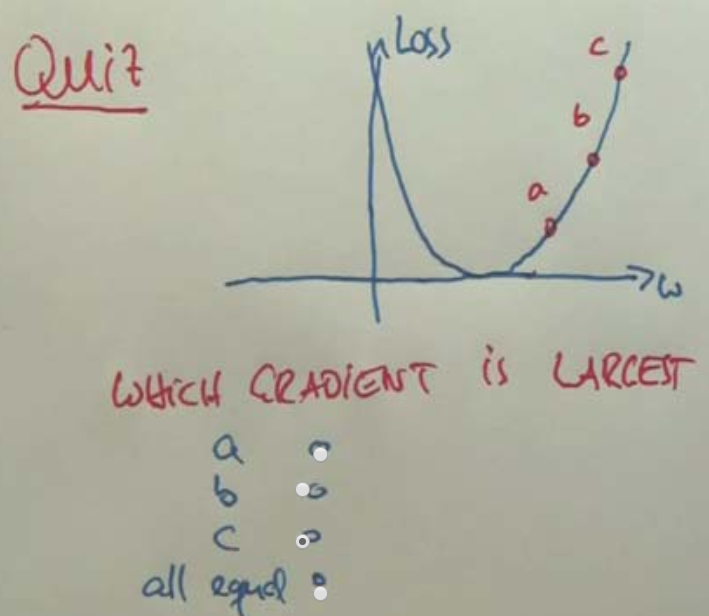 Quiz
Loss
c
b
a
w
WHICH GRADIENT is LARGEST
a
b
c
all equal